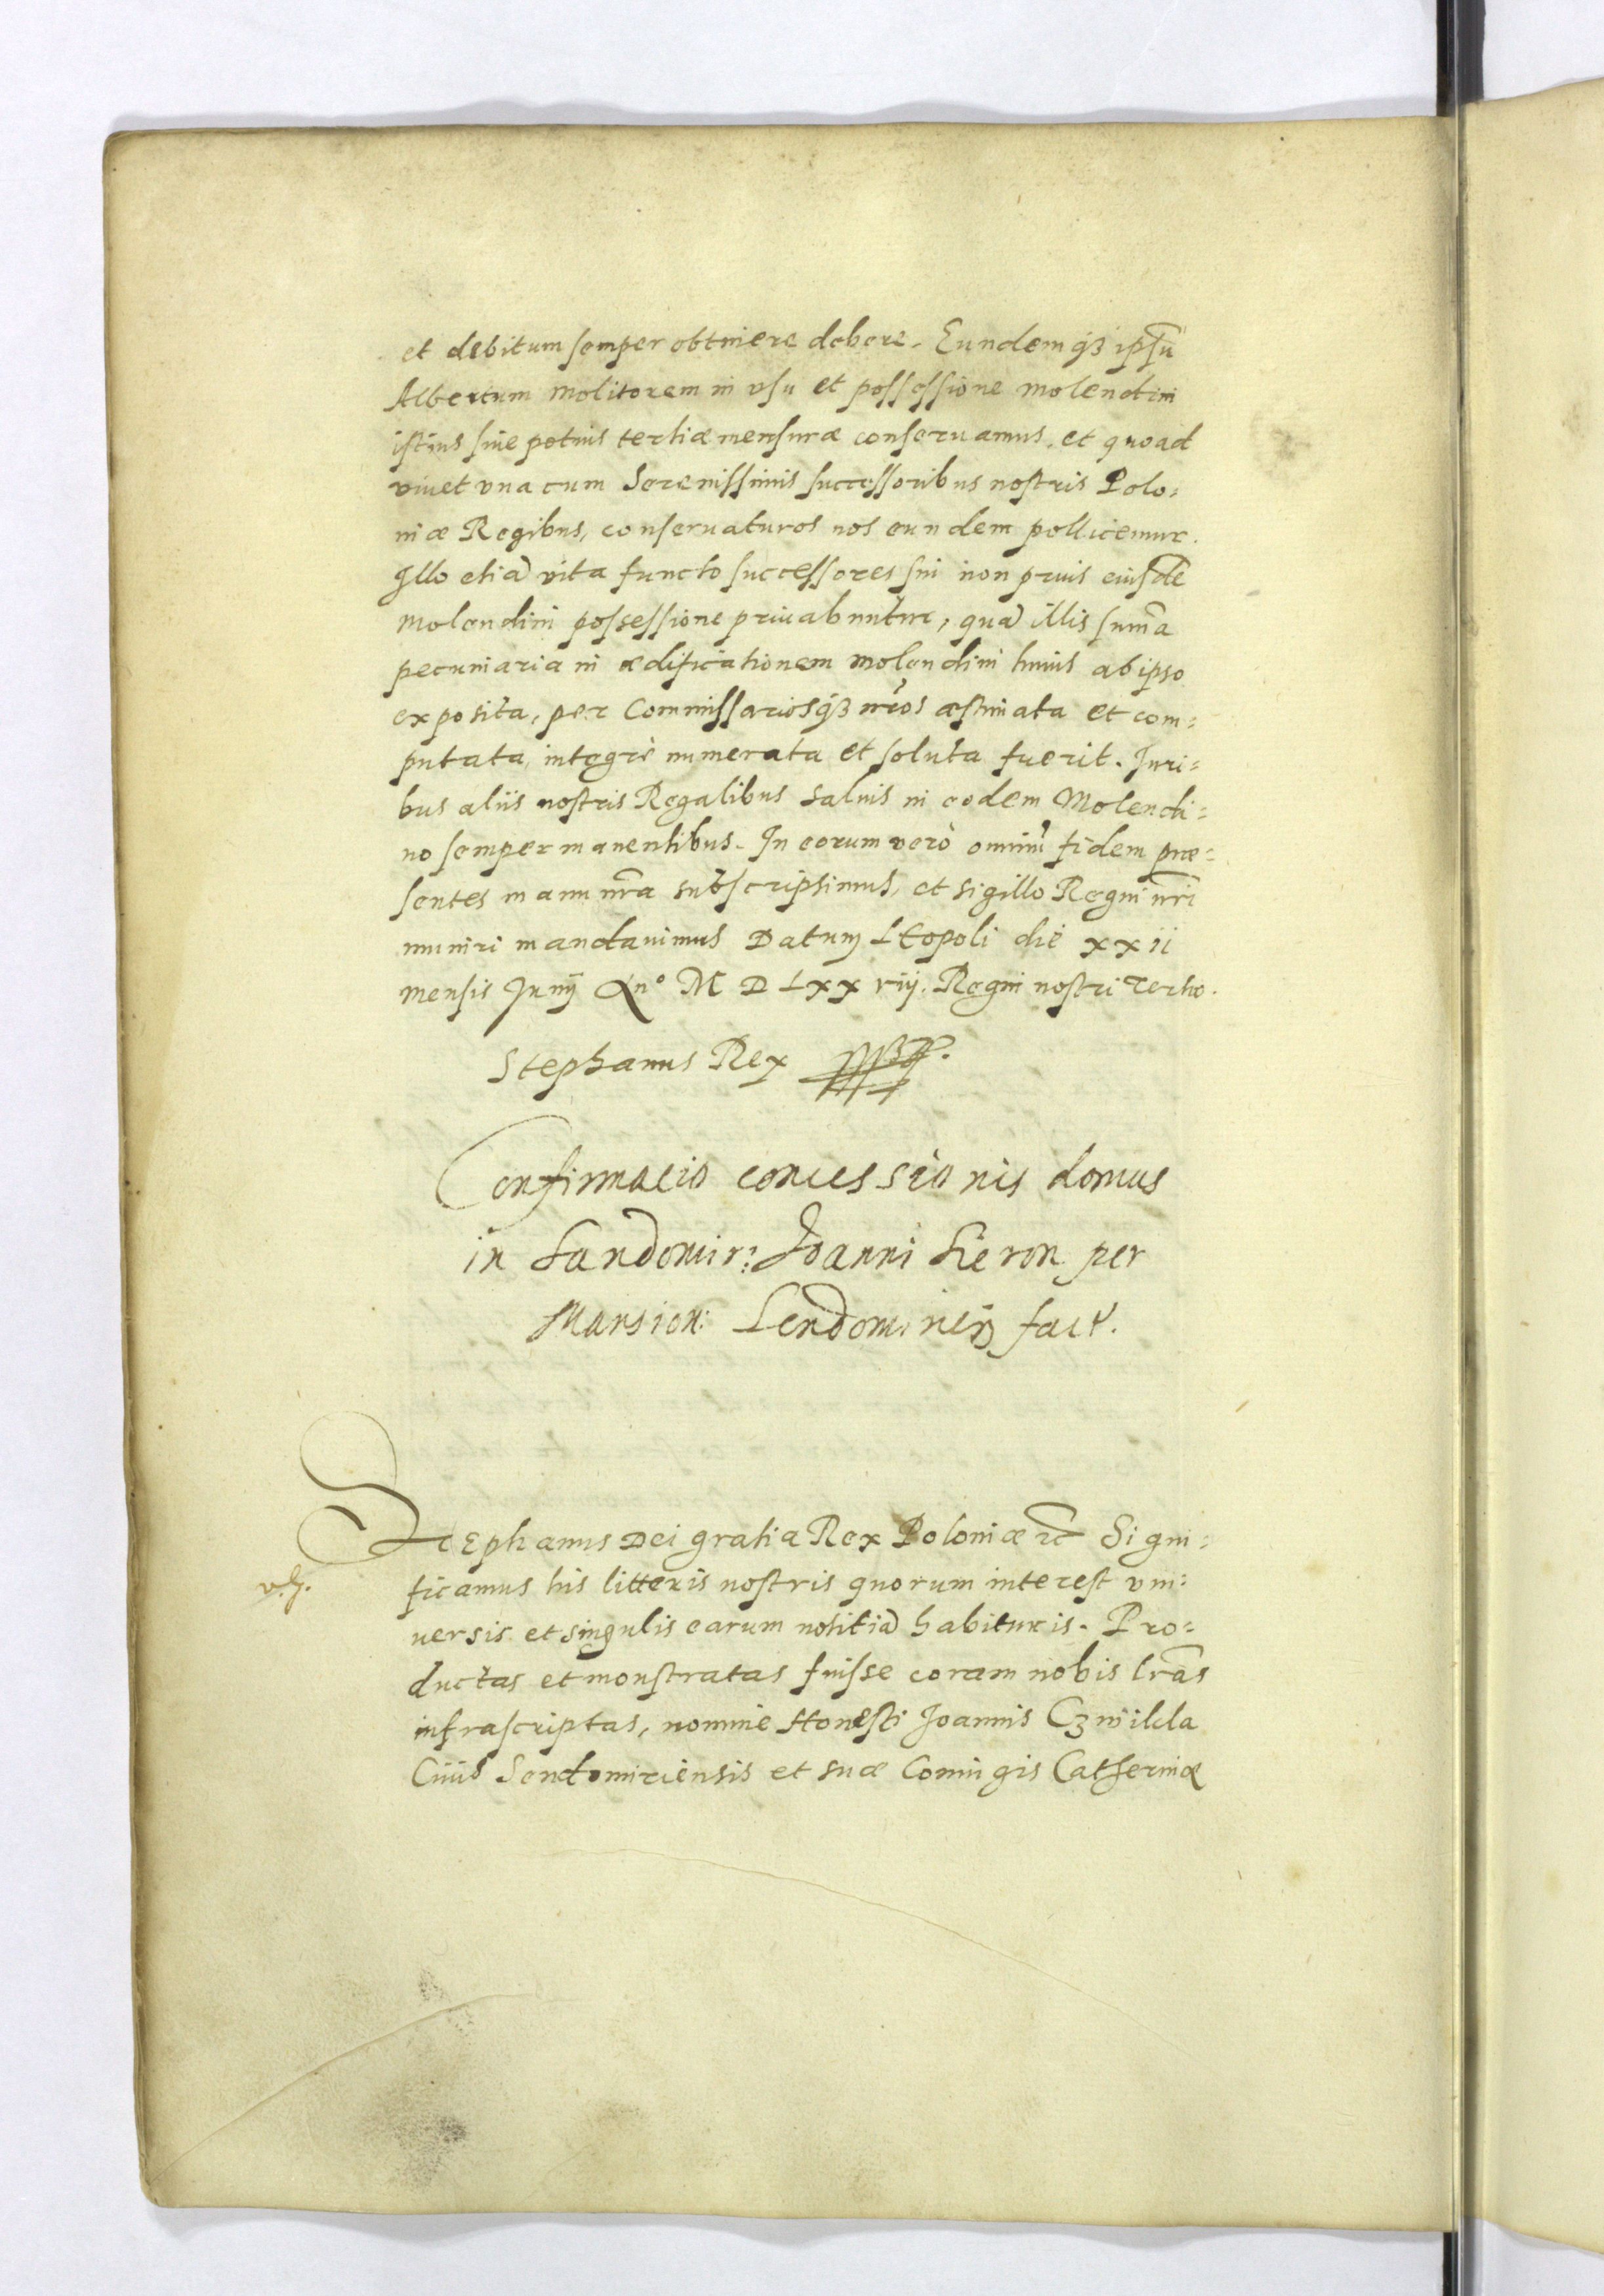 et debitum semper obtinere debere. Eundemqꝫ ipsũ
Albertum Molitorem in vsu et possessione Molendini
istius siue potius tertiæ mensuræ conseruamus, et quoad
viuet vna cum Serenissimis successoribus nostris Polo=
niæ Regibus, conseruaturos nos eundem pollicemur.
Illo etiã vita functo successores sui non prius eiusdẽ
Molendini possessione priuabuntur, quã illis sum̃a
pecuniaria in ædificationem Molendini huius ab ipso
exposita, per Commissariosqꝫ nr̃os æstimata et com=
putata, integrè numerata et soluta fuerit. Juri=
bus aliis nostris Regalibus saluis in eodem Molendi=
no semper manentibus. In eorum verò omniũ fidem præ=
sentes manu nr̃a subscripsimus, et sigillo Regni nr̃i
muniri mandauimus Datum Leopoli die xxii
mensis Junij Anº M D Lxx viij. Regni nostri Tertio.
Stephanus Rex
Confirmacio concessionis domus
in Sandomir: Joanni per
Mansion: fact.
Stephanus Dei gratia Rex Poloniæ ꝛc̃ Signi=
v.g.
ficamus his litteris nostris quorum interest vni=
uersis et singulis earum notitiã habituris. Pro=
ductas et monstratas fuisse coram nobis lr̃as
infrascriptas, nomine Honesti Joannis Czwikla
Ciuis Sendomiriensis et suæ Coniugis Catherinæ